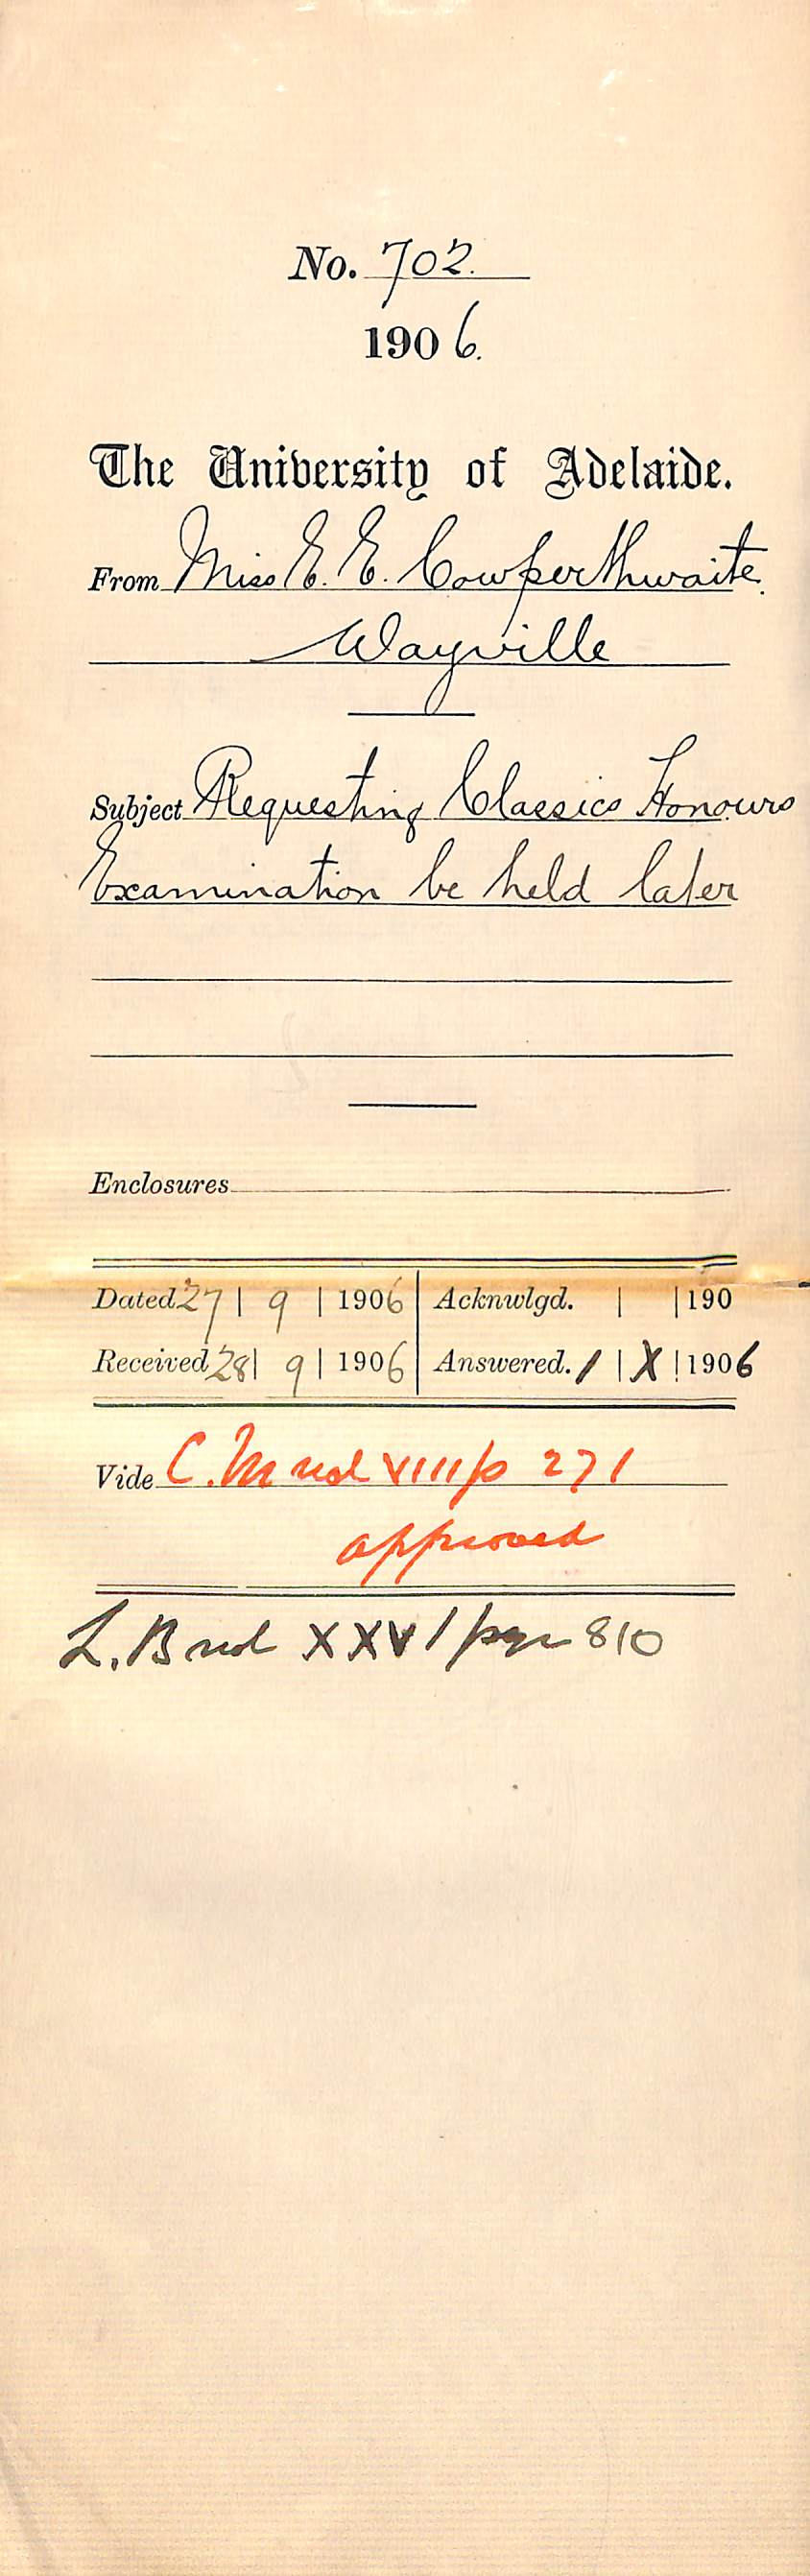 No. 702.
1906.
The University of Adelaide.
From Miss E. E. Cowperthwaite.
Wayville
Subject Requesting Classics Honours
Examination be held later
Enclosures
Dated 27 | 9 | 1906 | Acknwlgd. | | 190
Received 28 | 9 | 1906 | Answered. 1 | X | 1906
Vide C.M vol VIII p 271
approved
L.B vol XXVI page 810